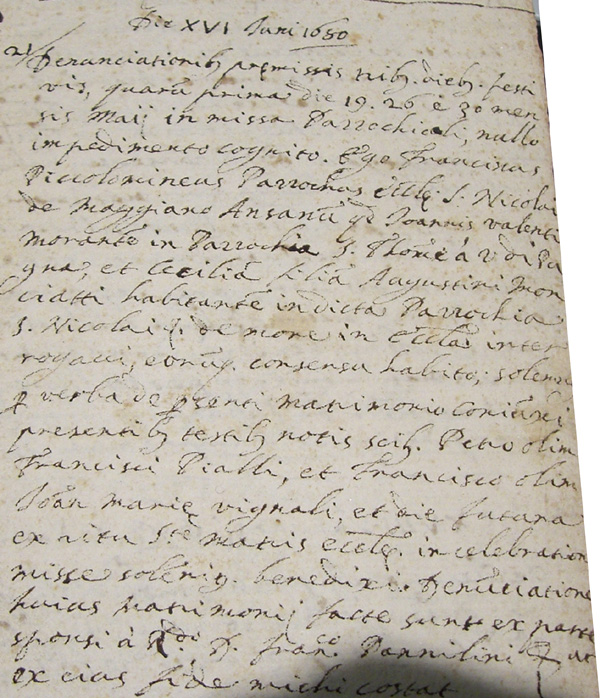 Die XVI Juni 1680
Denunciationib9 premissis trib9. dieb9. festi
vis, quarũ prima die 19. 26 e 30 men
sis Maij in missa Parrochiali; nullo
impedimento cognito. Ego Franciscus
Piccolomineus Parrochus eccle. S. Nicolai
de Maggiano Ansanũ qd Joannis valenti
morante in Parrochia S. Thome a v. di Pa
gna, et Cecilia filia Augustini Mon
ciatti habitante in dicta Parrochia
S. Nicolai de more in Eccla. inter
rogavi, eorũq. consensu habito; solenni
p verba de psenti matrimonio coniũxi
presentib9 testib9 notis scil. Petro olim
Francisci Pialli, et Francisco olim
Joan marie vignali, et die futura
ex ritu Ste Matris eccle. in celebration
misse solenīt. benedixi. Denũciatione
huius Matrimonij facte sunt ex parte
sponsi à Rdo D. Franco. Pannilini ut
ex eius fide michi costat